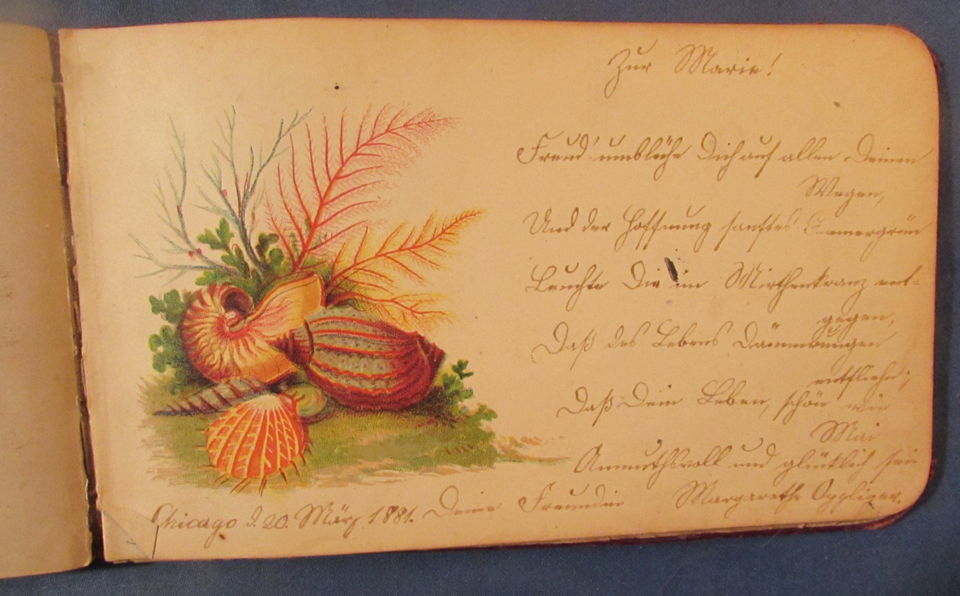 Zur Marie!
Freud' umblühe Dich auf allen Deinen
Wegen,
Und der Hoffnung sanftes Immergrün
Leuchte Dir im Mirthenkranz ent-
gegen,
Daß des Lebens Dämmrungen
entfliehn;
Daß Dein Leben, schön wie
Mai
Anmuthsvoll und glücklich sei
Chicago d. 20. März 1881. Deine Freundin Margarethe Oppliger.